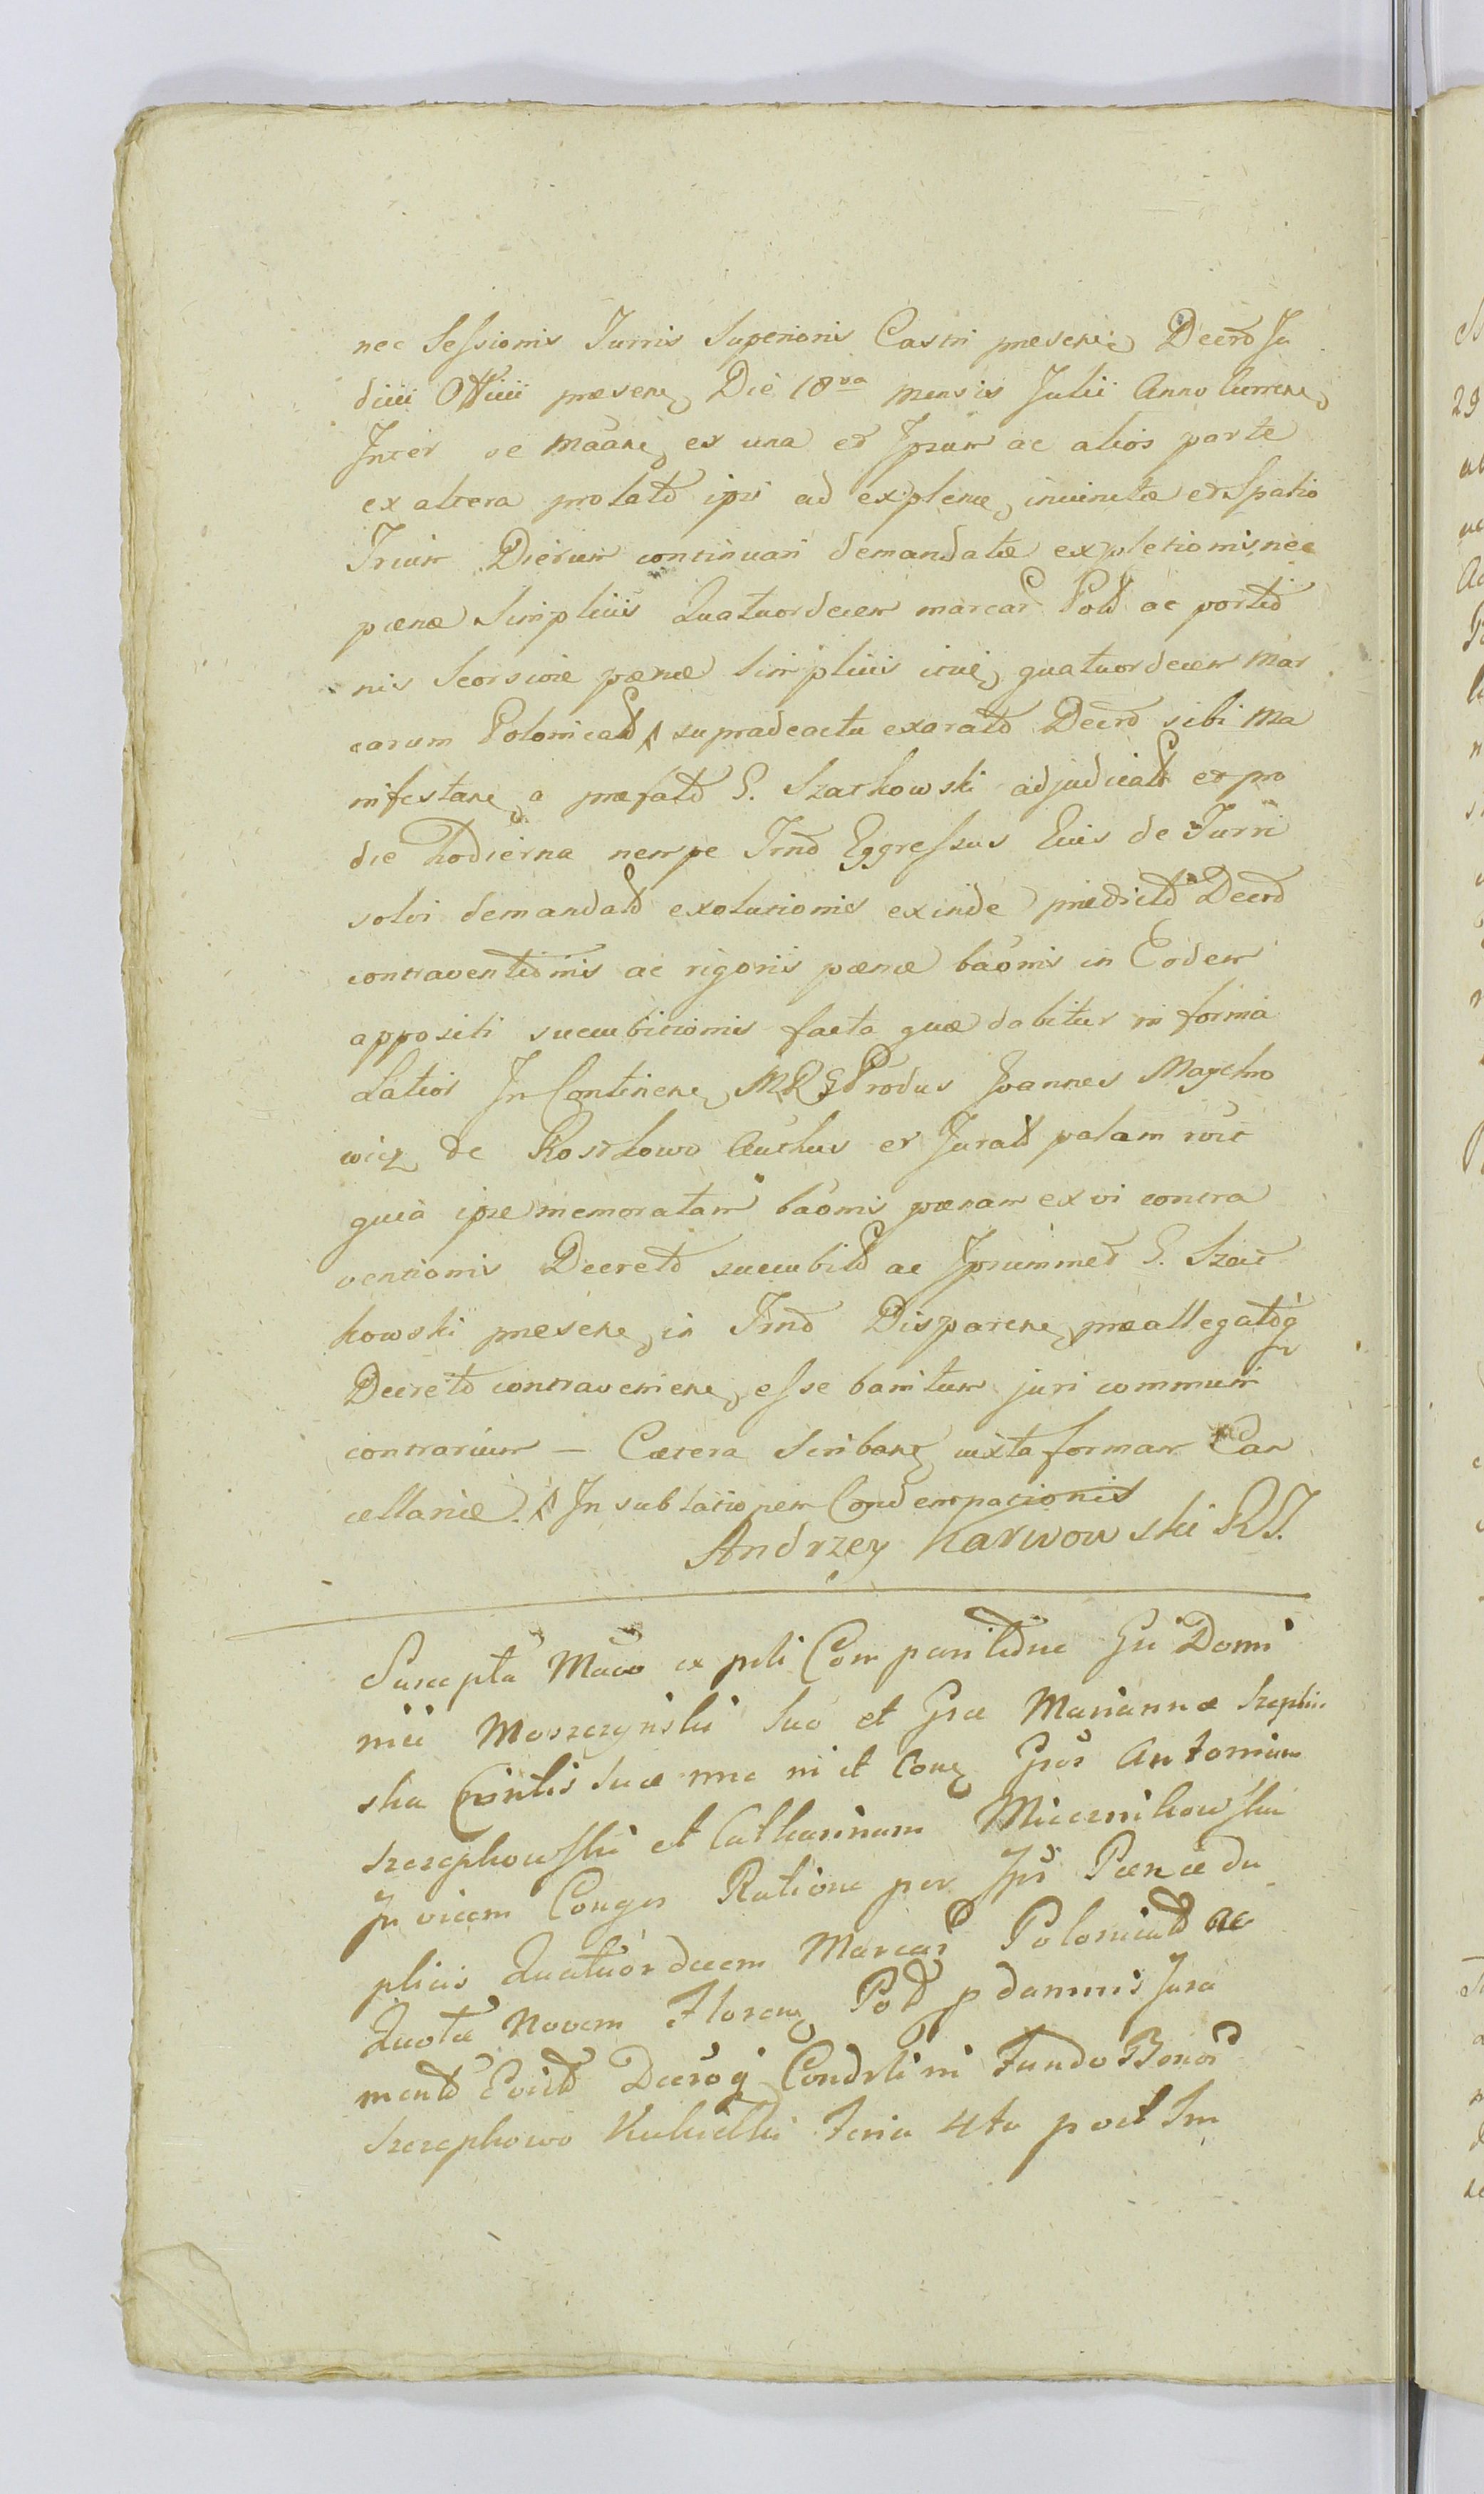 nec Sessionis Turris Superioris Castri presen Decrõ Ju
diiii Offiiii præsen Die 18va mensis Julii Anno Curren
Inter se Maãn ex una et Ipsum ac alios parte
ex altera prolatõ ipsi ad explen iniunctæ et Spatio
Trium Dierum continuari demandatæ expletionis nec
pænæ Simpliiis Quatuordecem marcar Pol ac portiõ
nis Seorsive pænæ Simpliiis quatuordecem Mar
carum Polonical supradeactu exoratõ Decrõ sibi Ma
nifestan a præfatõ G. Szarkowski adjudicatt et pro
die hodierna nempe Trnõ Eggressus Euis de Turri
solvi demandatõ exolutionis exinde prædictõ Decrõ
contraventiõnis ac rigoris pænæ baõnis in Eodem
appositi succubitionis facta quæ dabitur in forma
Latior In Continen MRG Produs Joannes Maycho
wicz de Kostkowo Authus et Jurat palam
quia ipse memoratam baõnis pænam ex vi contra
ventionis Decretõ succubitt ac Ipsummet G. Szar
kowski præsen in Trnõ Disparen præallegatõq
Decretõ contravenien esse banitum juri communi
contrarium — Cætera Scriban iuxta formam Can
cellariæ. In sublationem Condempnationis
Andrzey Karwowski RT.
Suscepta Maõo ex pti Comparitiõne Gsi Domi
nici Moszczynski Suo et Gsæ Mariannæ Szepkow
ska Cõntlis Suæ nne in et Con Gsos Antonium
Szczepkowski et Catharinam Miecznikowska
Invicem Conges Ratione per Ips Pænæ du
pliiis Quatuordecem Marcar Polonicatt ac
Quotæ Novem Floren Pol p damnis Jura
mentõ Evictt Decrõq Condrli in Fundo Bonor
Szczepkowo Kukiełki Feria 4ta post Im